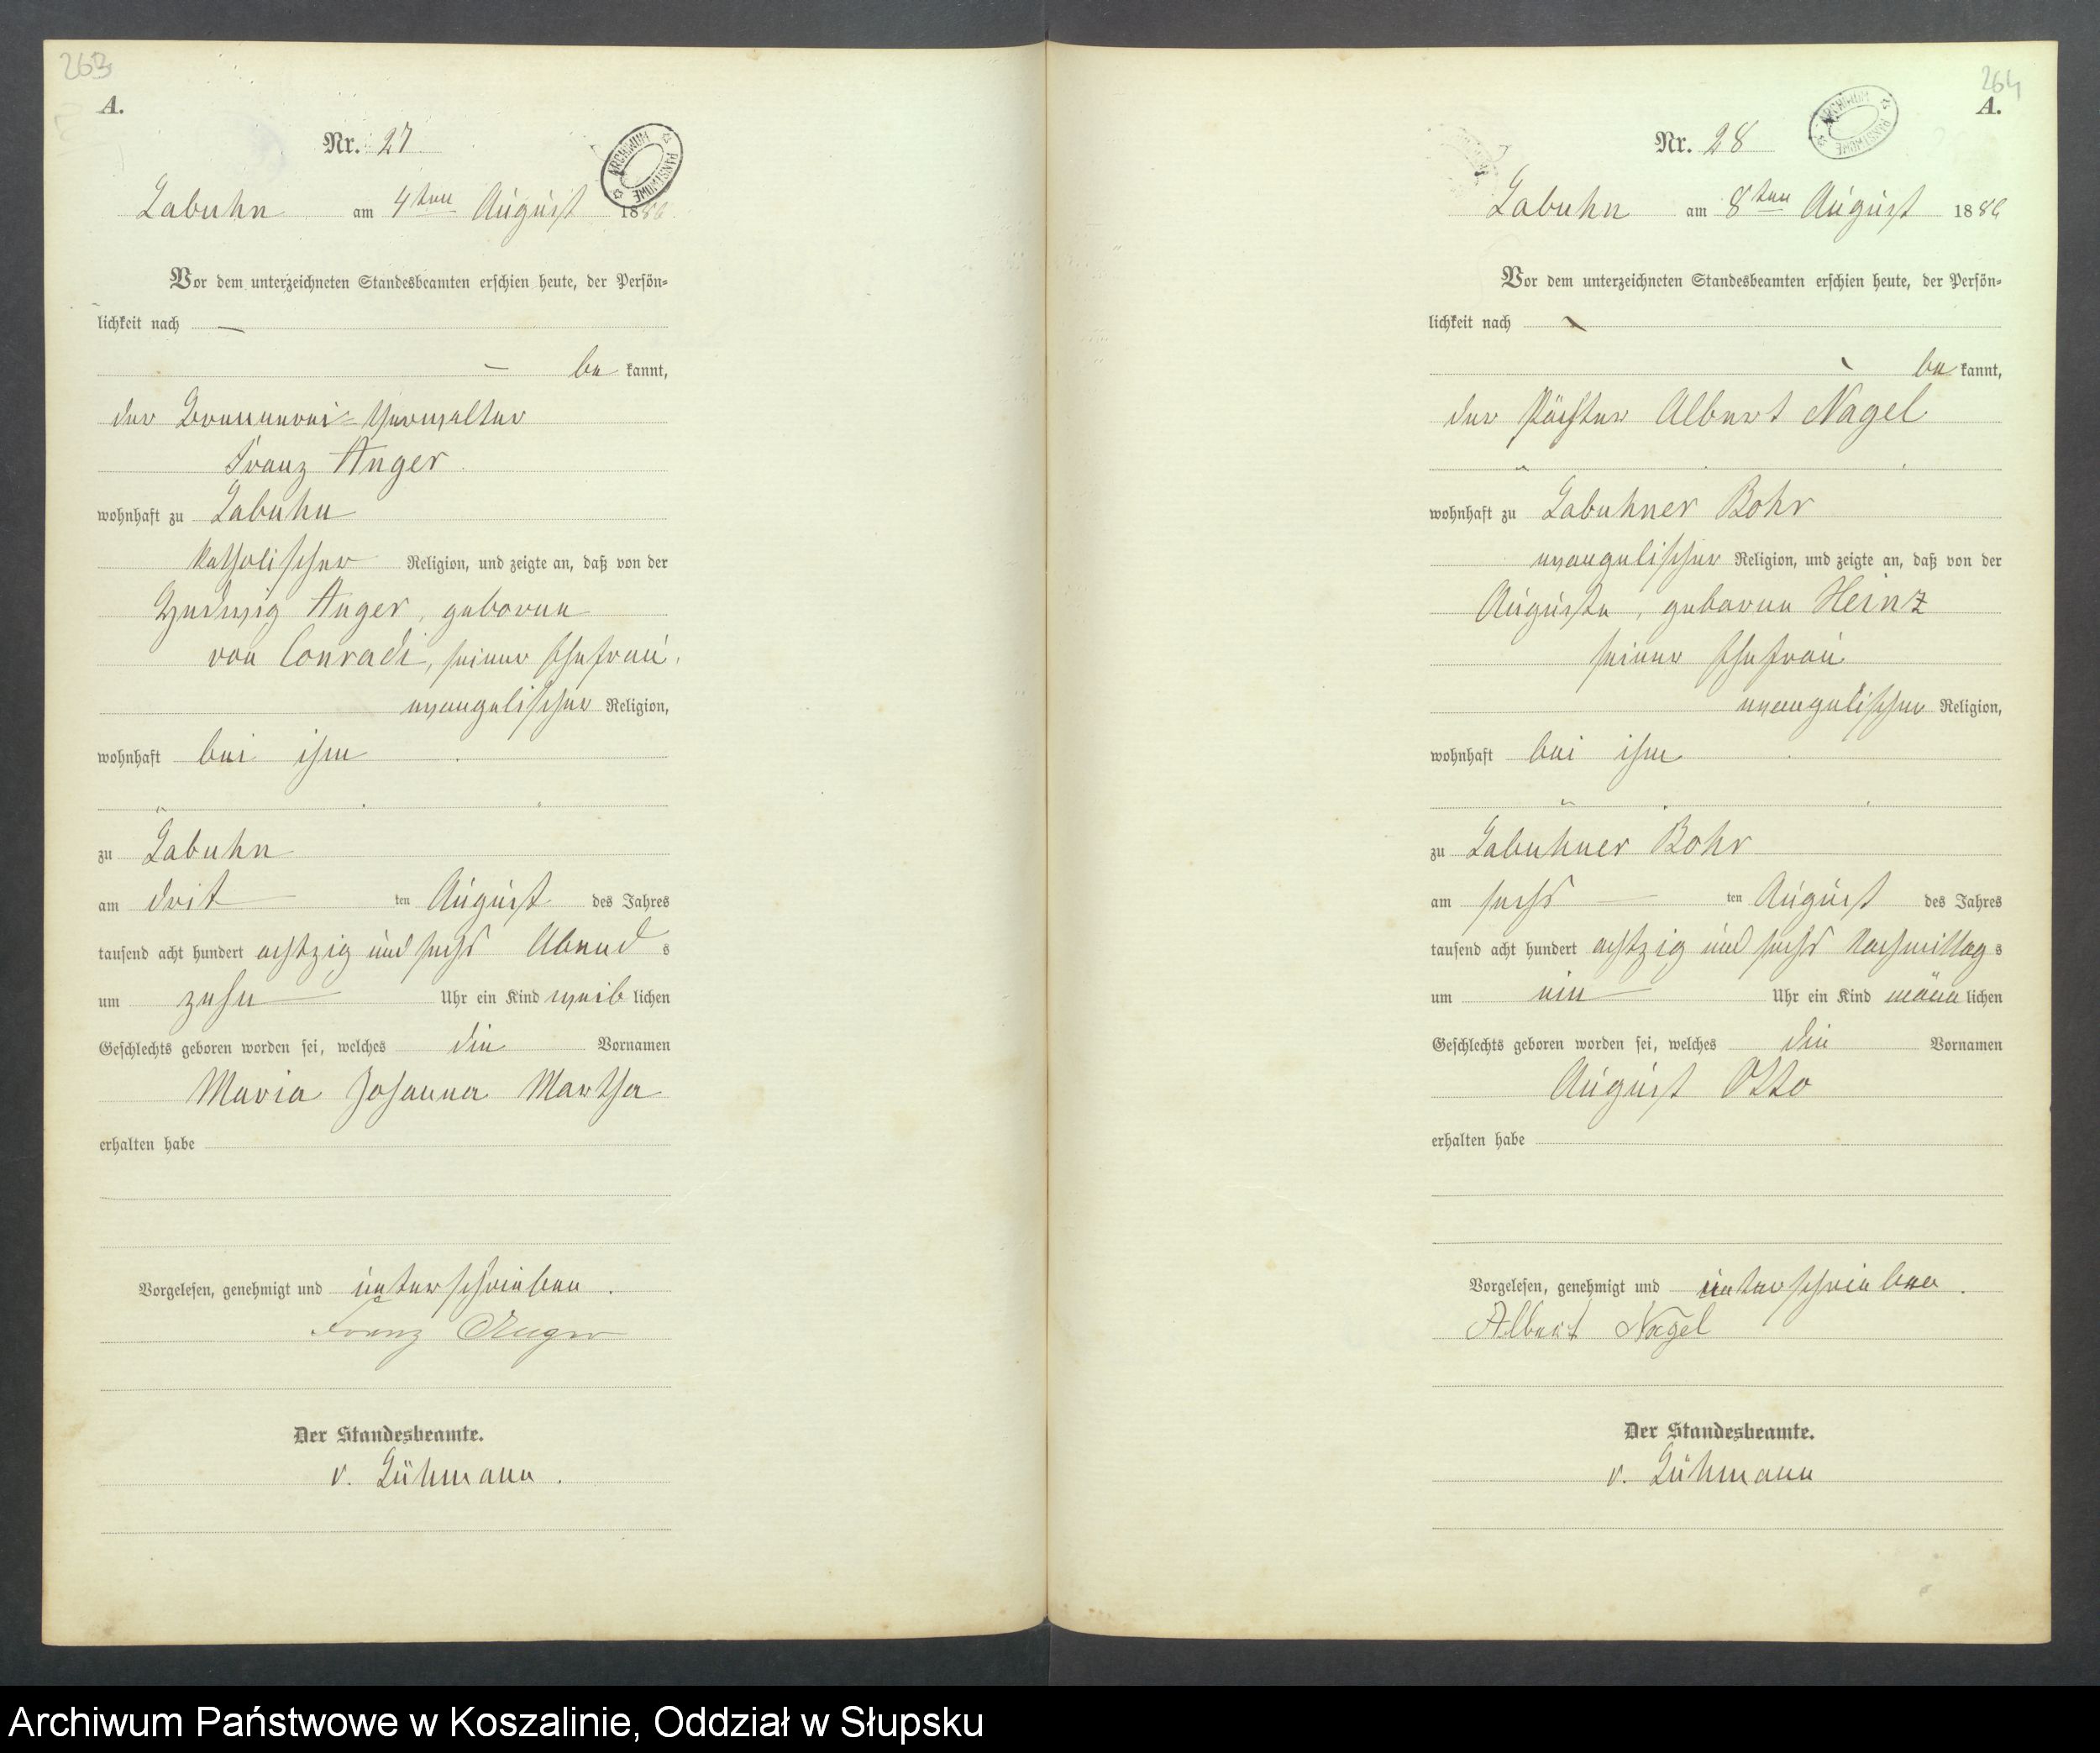 263
A.
Nr. 27
ARCHIWUM PAŃSTWOWE
Labuhn am 4ten August 1886
Vor dem unterzeichneten Standesbeamten erschien heute, der Persön-
lichkeit nach —
— be kannt,
der Brennerei-Verwalter
Franz Anger
wohnhaft zu Labuhn
katholischer Religion, und zeigte an, daß von der
Hedwig Anger, geborene
von Conradi, seiner Ehefrau,
evangelischer Religion,
wohnhaft bei ihm
zu Labuhn
am drit ten August des Jahres
tausend acht hundert achtzig und sechs Abend s
um zehn Uhr ein Kind weib lichen
Geschlechts geboren worden sei, welches die Vornamen
Maria Johanna Martha
erhalten habe
Vorgelesen, genehmigt und unterschrieben.
Franz Anger
Der Standesbeamte.
v. Lühmann.
264
A.
Nr. 28
ARCHIWUM PAŃSTWOWE
Labuhn am 8ten August 1886
Vor dem unterzeichneten Standesbeamten erschien heute, der Persön-
lichkeit nach
be kannt,
der Pächter Albert Nagel
wohnhaft zu Labuhner Bohr
evangelischer Religion, und zeigte an, daß von der
Auguste, geborene Heinz
seiner Ehefrau
evangelischer Religion,
wohnhaft bei ihm
zu Labuhner Bohr
am sechs ten August des Jahres
tausend acht hundert achtzig und sechs Nachmittag s
um ein Uhr ein Kind männ lichen
Geschlechts geboren worden sei, welches die Vornamen
August Otto
erhalten habe
Vorgelesen, genehmigt und unterschrieben.
Albert Nagel
Der Standesbeamte.
v. Lühmann
Archiwum Państwowe w Koszalinie, Oddział w Słupsku